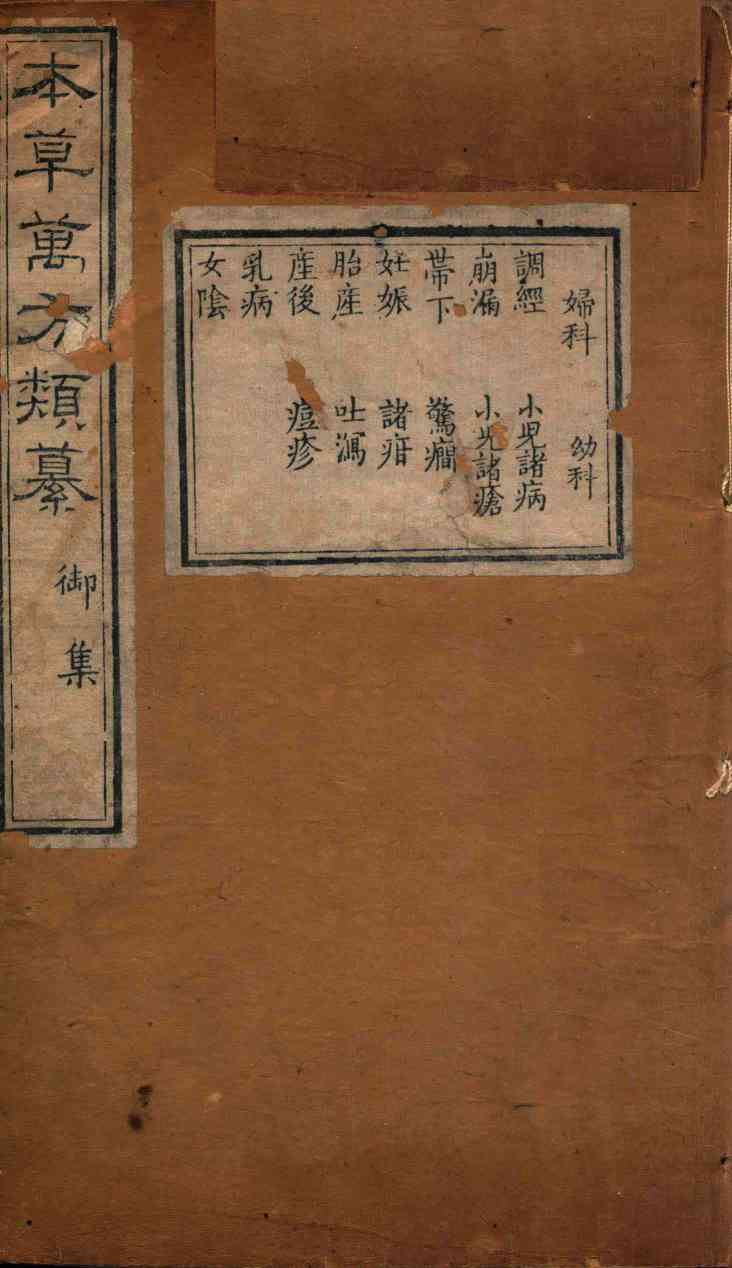 本草萬方類纂
御集
婦科 幼科
調經 小児諸病
崩漏 小児諸瘡
帯下 驚癇
妊娠 諸疳
胎産 吐瀉
産後 痘疹
乳病
女陰